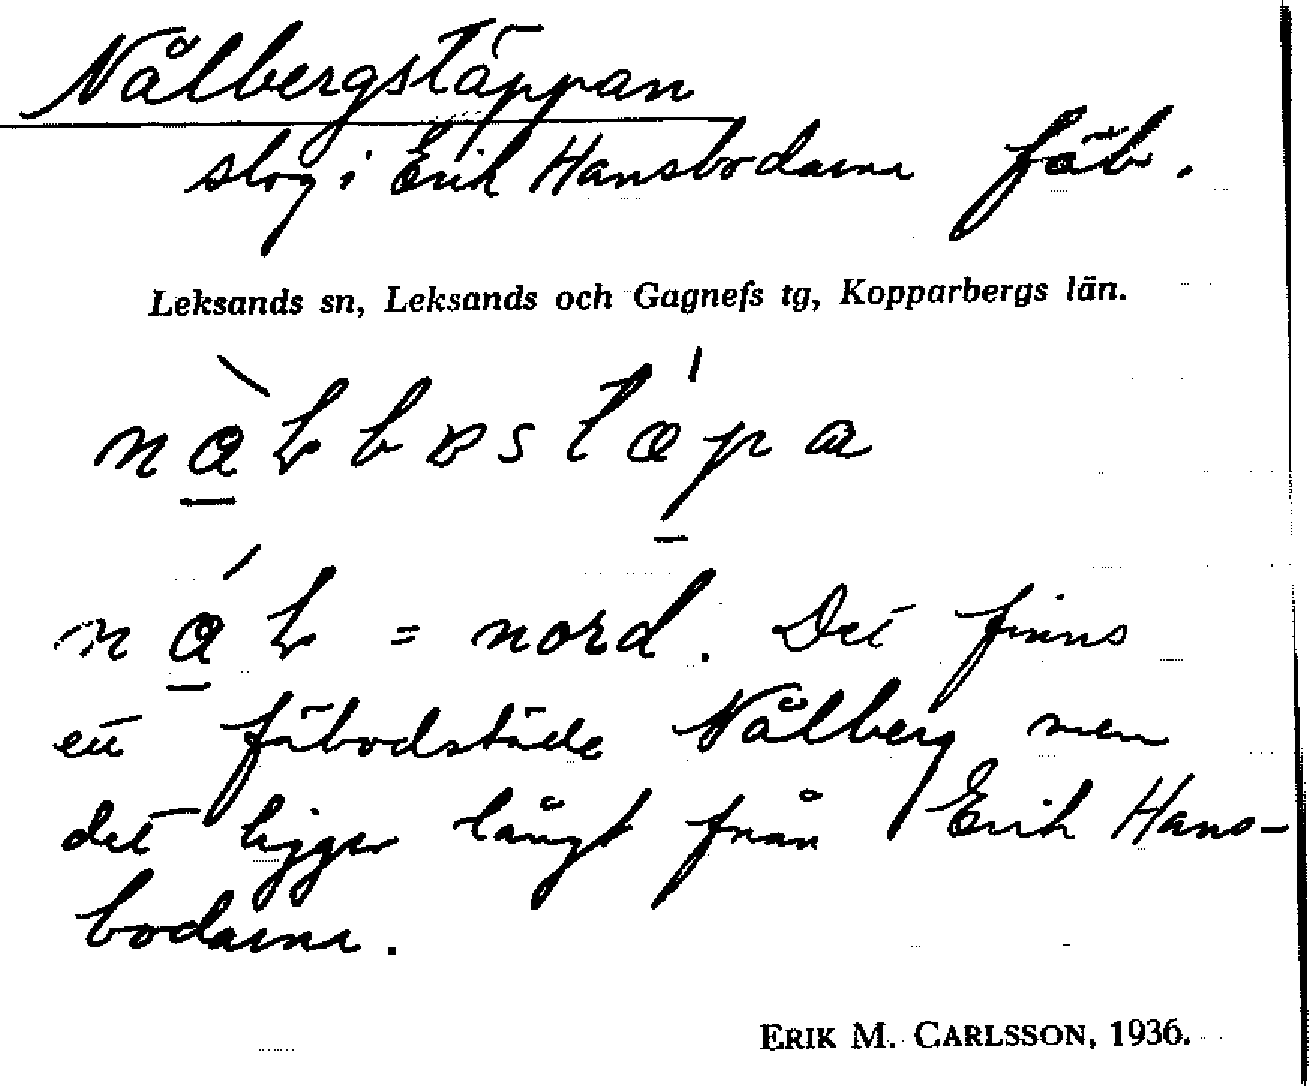 Nålbergstäppan
slog i Erik Hansbodarna fäb.
Leksands sn, Leksands och Gagnefs tg, Kopparbergs län.
= nord. Det finns
ett fäbodställe Nålberg men
det ligger långt från Erik Hans-
bodarna.
ERIK M. CARLSSON, 1936.